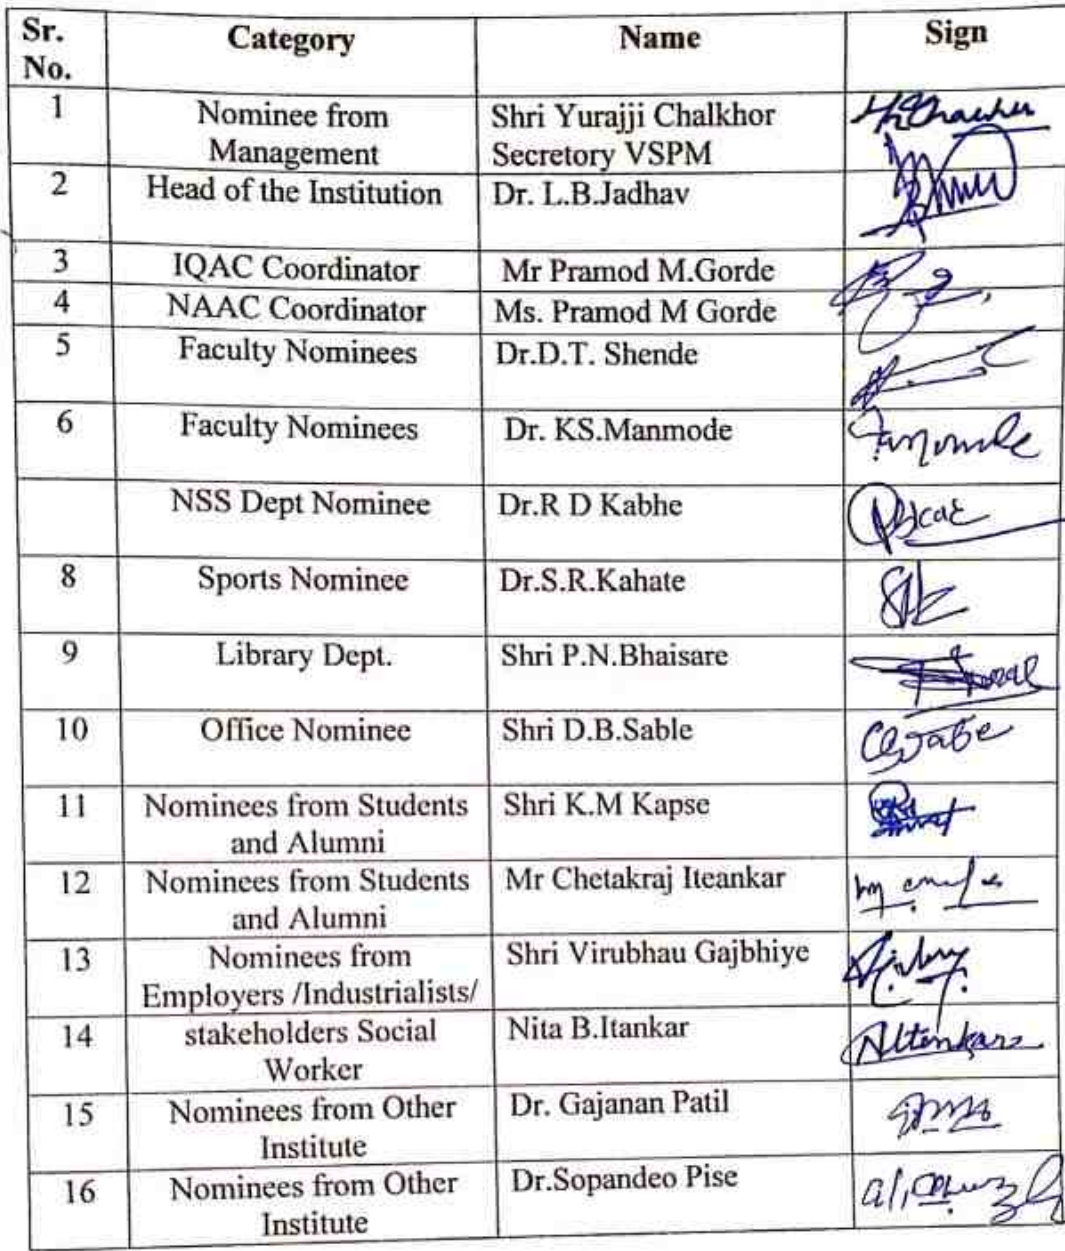 Sr. No. Category Name Sign
1 Nominee from Management Shri Yurajji Chalkhor Secretory VSPM
2 Head of the Institution Dr. L.B.Jadhav
3 IQAC Coordinator Mr Pramod M.Gorde
4 NAAC Coordinator Ms. Pramod M Gorde
5 Faculty Nominees Dr.D.T. Shende
6 Faculty Nominees Dr. KS.Manmode
NSS Dept Nominee Dr.R D Kabhe
8 Sports Nominee Dr.S.R.Kahate
9 Library Dept. Shri P.N.Bhaisare
10 Office Nominee Shri D.B.Sable
11 Nominees from Students and Alumni Shri K.M Kapse
12 Nominees from Students and Alumni Mr Chetakraj Iteankar
13 Nominees from Employers /Industrialists/ Shri Virubhau Gajbhiye
14 stakeholders Social Worker Nita B.Itankar
15 Nominees from Other Institute Dr. Gajanan Patil
16 Nominees from Other Institute Dr.Sopandeo Pise